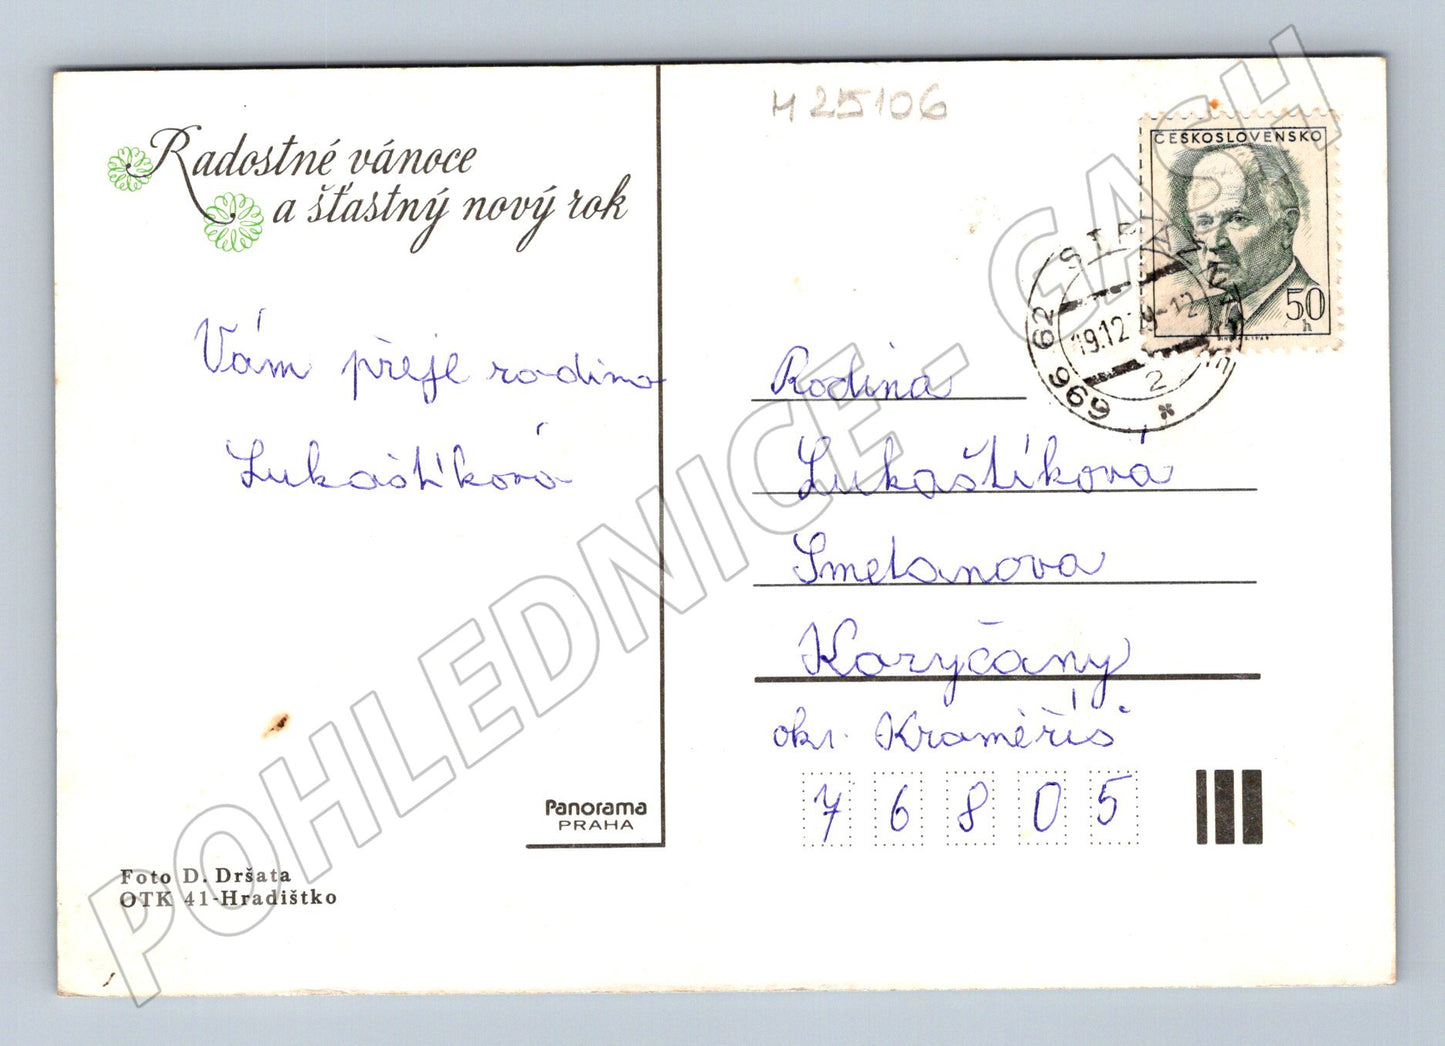 M 25106
Radostné vánoce
a šťastný nový rok
Vám přeje rodina
Lukaštíková
ČESKOSLOVENSKO
50
h
969 62
19.12.
-12
2
Rodina
Lukaštíková
Smetanova
Koryčany
okr. Kroměříš
76805
Panorama
PRAHA
Foto D. Dršata
OTK 41-Hradištko
POHLEDNICE - GASH